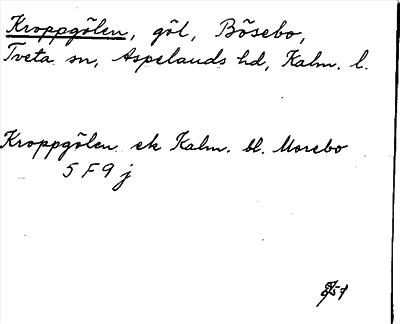 Kroppgölen, göl, Bösebo,
Tveta sn, Aspelands hd, Kalm. l.
Kroppgölen ek Kalm. bl. Morebo
5 F 9 j